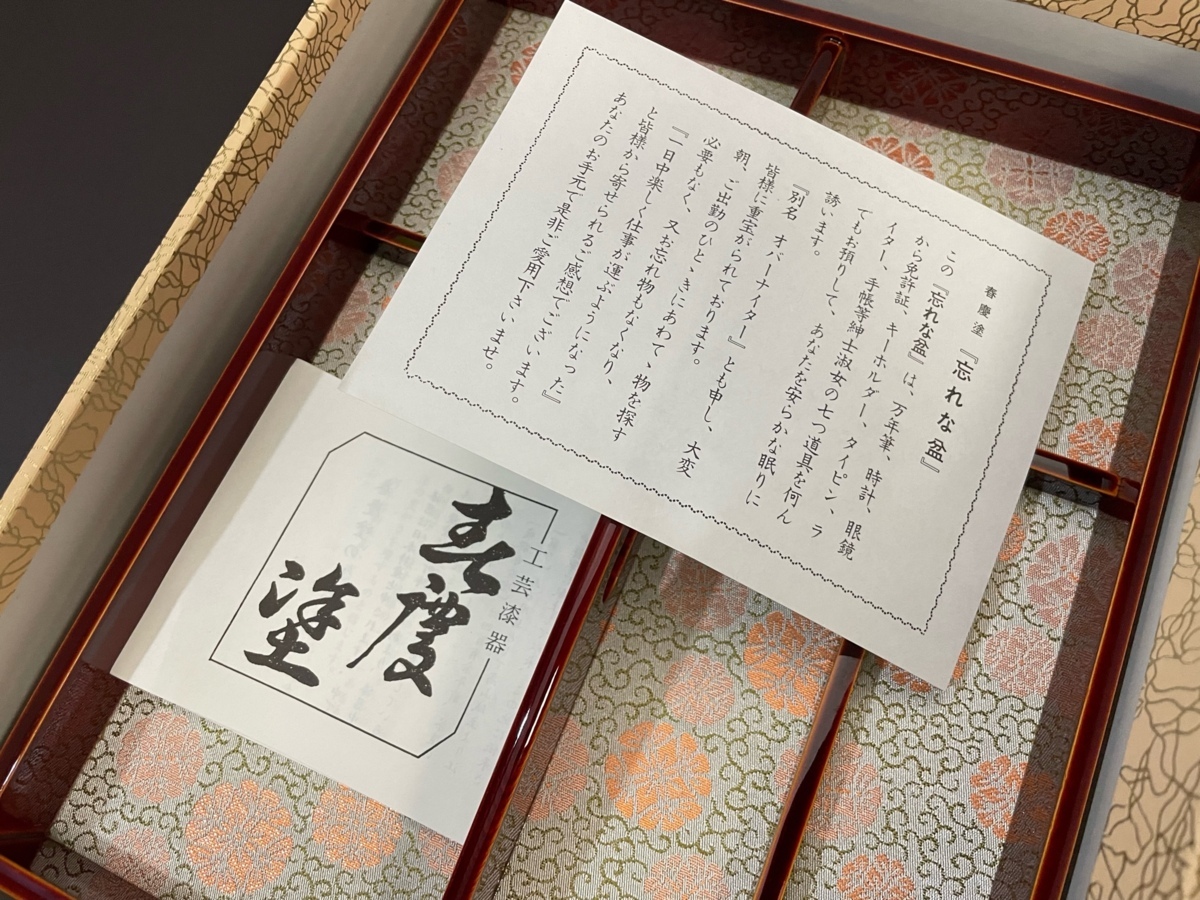 春慶塗 『忘れな盆』
この『忘れな盆』は、万年筆、時計、眼鏡
から免許証、キーホルダー、タイピン、ラ
イター、手帳等紳士淑女の七つ道具を何ん
でもお預りして、あなたを安らかな眠りに
誘います。
『別名 オバーナイター』とも申し、大変
皆様に重宝がられております。
朝、ご出勤のひとゝきにあわて、物を探す
必要もなく、又お忘れ物もなくなり、
『一日中楽しく仕事が運ぶようになった』
と皆様から寄せられるご感想でございます。
あなたのお手元で是非ご愛用下さいませ。
工芸漆器
春慶
塗